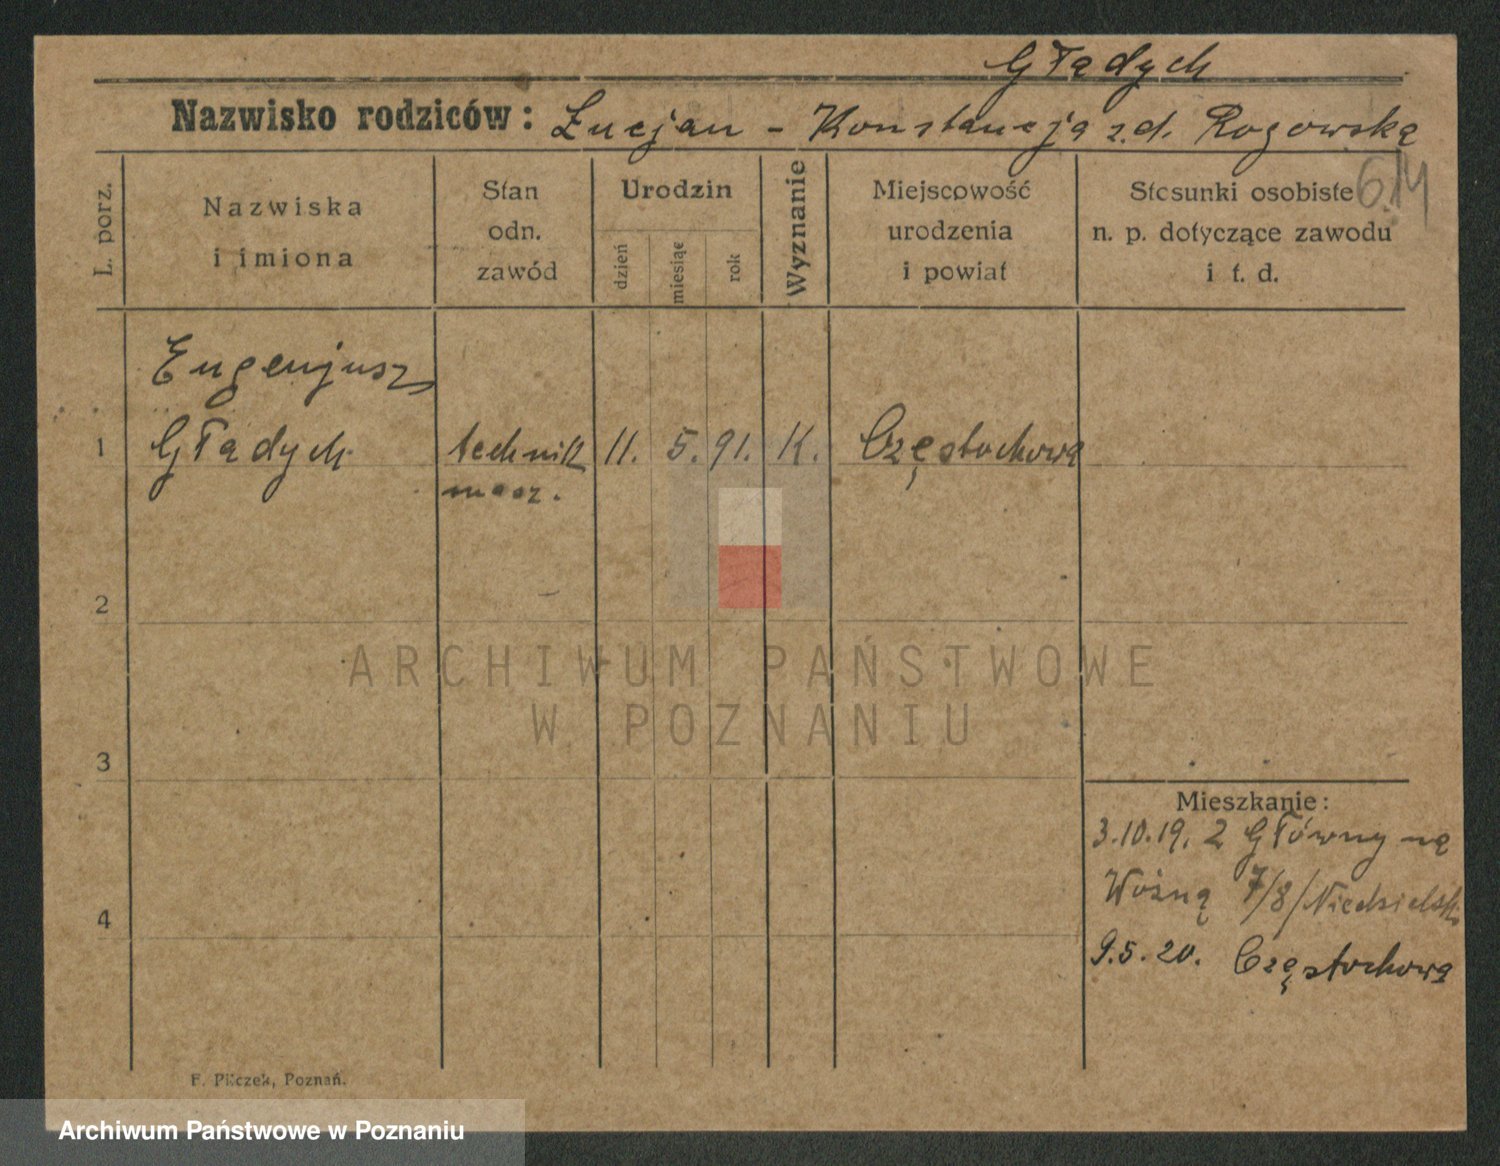 Głądych
Nazwisko rodziców: Łucjan - Konstancja z.d. Rogowska
614
L. porz.
Nazwiska
i imiona
Stan
odn.
zawód
Urodzin
dzień
miesiąc
rok
Wyznanie
Miejscowość
urodzenia
i powiat
Stosunki osobiste
n. p. dotyczące zawodu
i t. d.
Eugenjusz
1 Głądych technik 11. 5. 91. K. Częstochowa
masz.
2
ARCHIWUM PAŃSTWOWE
W POZNANIU
3
Mieszkanie:
3.10.19. z Główny na
Woźną 7/8/Niedzielski
4
9.5.20. Częstochowa
F. Pilczek, Poznań.
Archiwum Państwowe w Poznaniu